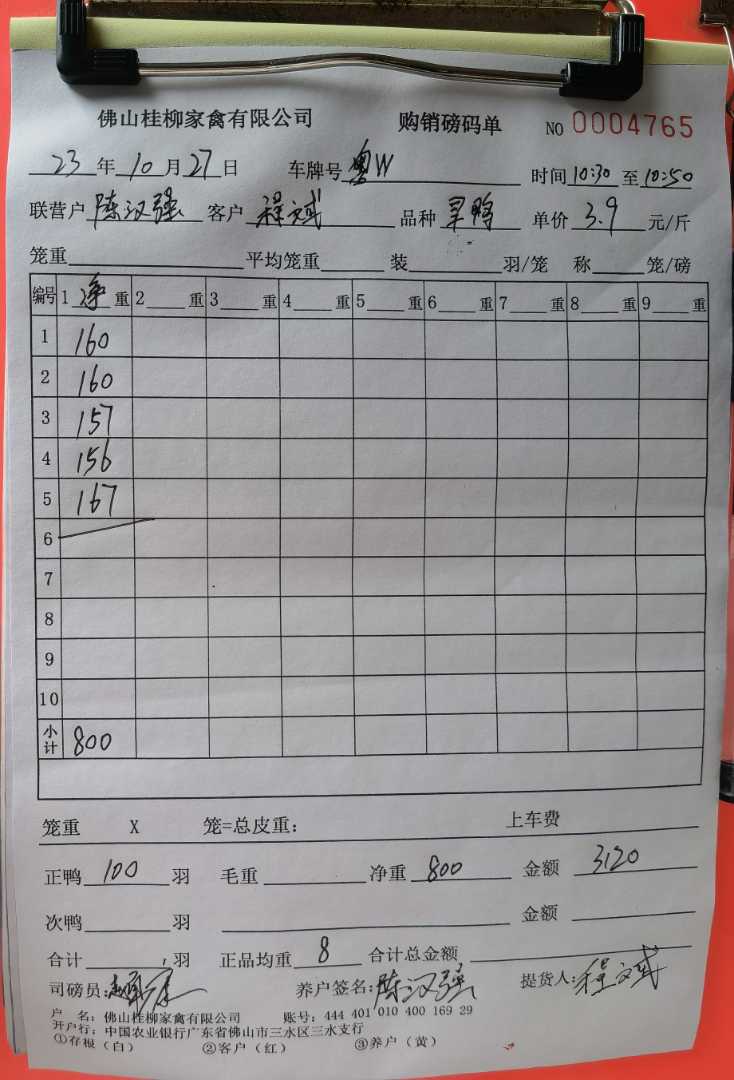 佛山桂柳家禽有限公司 购销磅码单 NO 0004765
23 年 10 月 27 日 车牌号 粤W 时间 10:30 至 10:50
联营户 陈汉强 客户 程斌 品种 旱鸭 单价 3.9 元/斤
笼重 平均笼重 装 羽/笼 称 笼/磅
编号 1 净 重 2 重 3 重 4 重 5 重 6 重 7 重 8 重 9 重
1 160
2 160
3 157
4 156
5 167
6
7
8
9
10
小计 800
笼重 X 笼=总皮重： 上车费
正鸭 100 羽 毛重 净重 800 金额 3120
次鸭 羽 金额
合计 羽 正品均重 8 合计总金额
司磅员: 养户签名: 陈汉强 提货人: 程斌
户 名: 佛山桂柳家禽有限公司 账号: 444 401 010 400 169 29
开户行: 中国农业银行广东省佛山市三水区三水支行
①存根（白） ②客户（红） ③养户（黄）